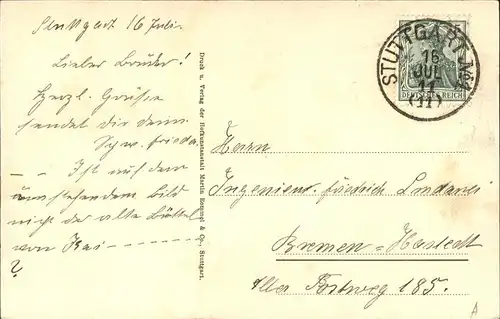 Stuttgart 16 Juli.
Lieber Bruder!
Herzl. Grüsse
sendet dir deine
Schw. Frieda
– – Ist auf dem
umstehendem Bild
nicht der alte Büttel
von
?
Druck u. Verlag der Hofkunstanstalt Martin Rommel & Co., Stuttgart.
STUTTGART No 1
16
JUL
11
(11)
DEUTSCHES REICH
Herrn
Ingenieur Friedrich
Bremen-Hastedt
Alter Postweg 185.